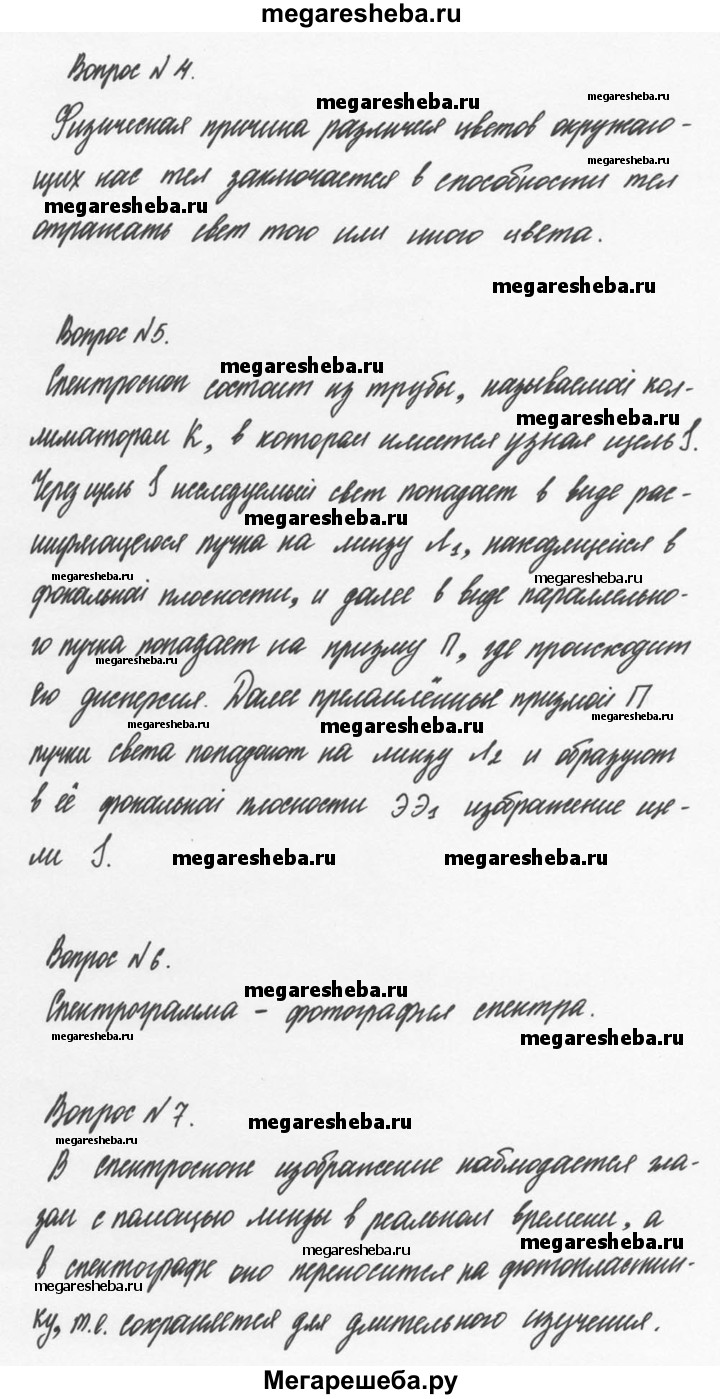 megaresheba.ru
Вопрос №4.
megaresheba.ru megaresheba.ru
Физическая причина различия цветов окружаю-
megaresheba.ru
щих нас тел заключается в способности тел
megaresheba.ru
отражать свет того или иного цвета.
megaresheba.ru
Вопрос №5.
megaresheba.ru
Спектроскоп состоит из трубы, называемой кол-
megaresheba.ru
лиматором К, в котором имеется узкая щель S.
Через щель S исследуемый свет попадает в виде рас-
megaresheba.ru
ширяющегося пучка на линзу Л1, находящейся в
megaresheba.ru megaresheba.ru
фокальной плоскости, и далее в виде параллельно-
го пучка попадает на призму П, где происходит
megaresheba.ru
его дисперсия. Далее преломлённые призмой П
megaresheba.ru megaresheba.ru megaresheba.ru
пучки света попадают на линзу Л2 и образуют
в её фокальной плоскости ЭЭ1 изображение ще-
ли S.
megaresheba.ru megaresheba.ru
Вопрос №6.
megaresheba.ru
Спектрограмма - фотография спектра.
megaresheba.ru megaresheba.ru
Вопрос №7.
megaresheba.ru
megaresheba.ru
В спектроскопе изображение наблюдается гла-
зом с помощью линзы в реальном времени, а
megaresheba.ru megaresheba.ru
в спектографе оно переносится на фотопластин-
megaresheba.ru
ку, т.е. сохраняется для длительного изучения.
Мегарешеба.ру